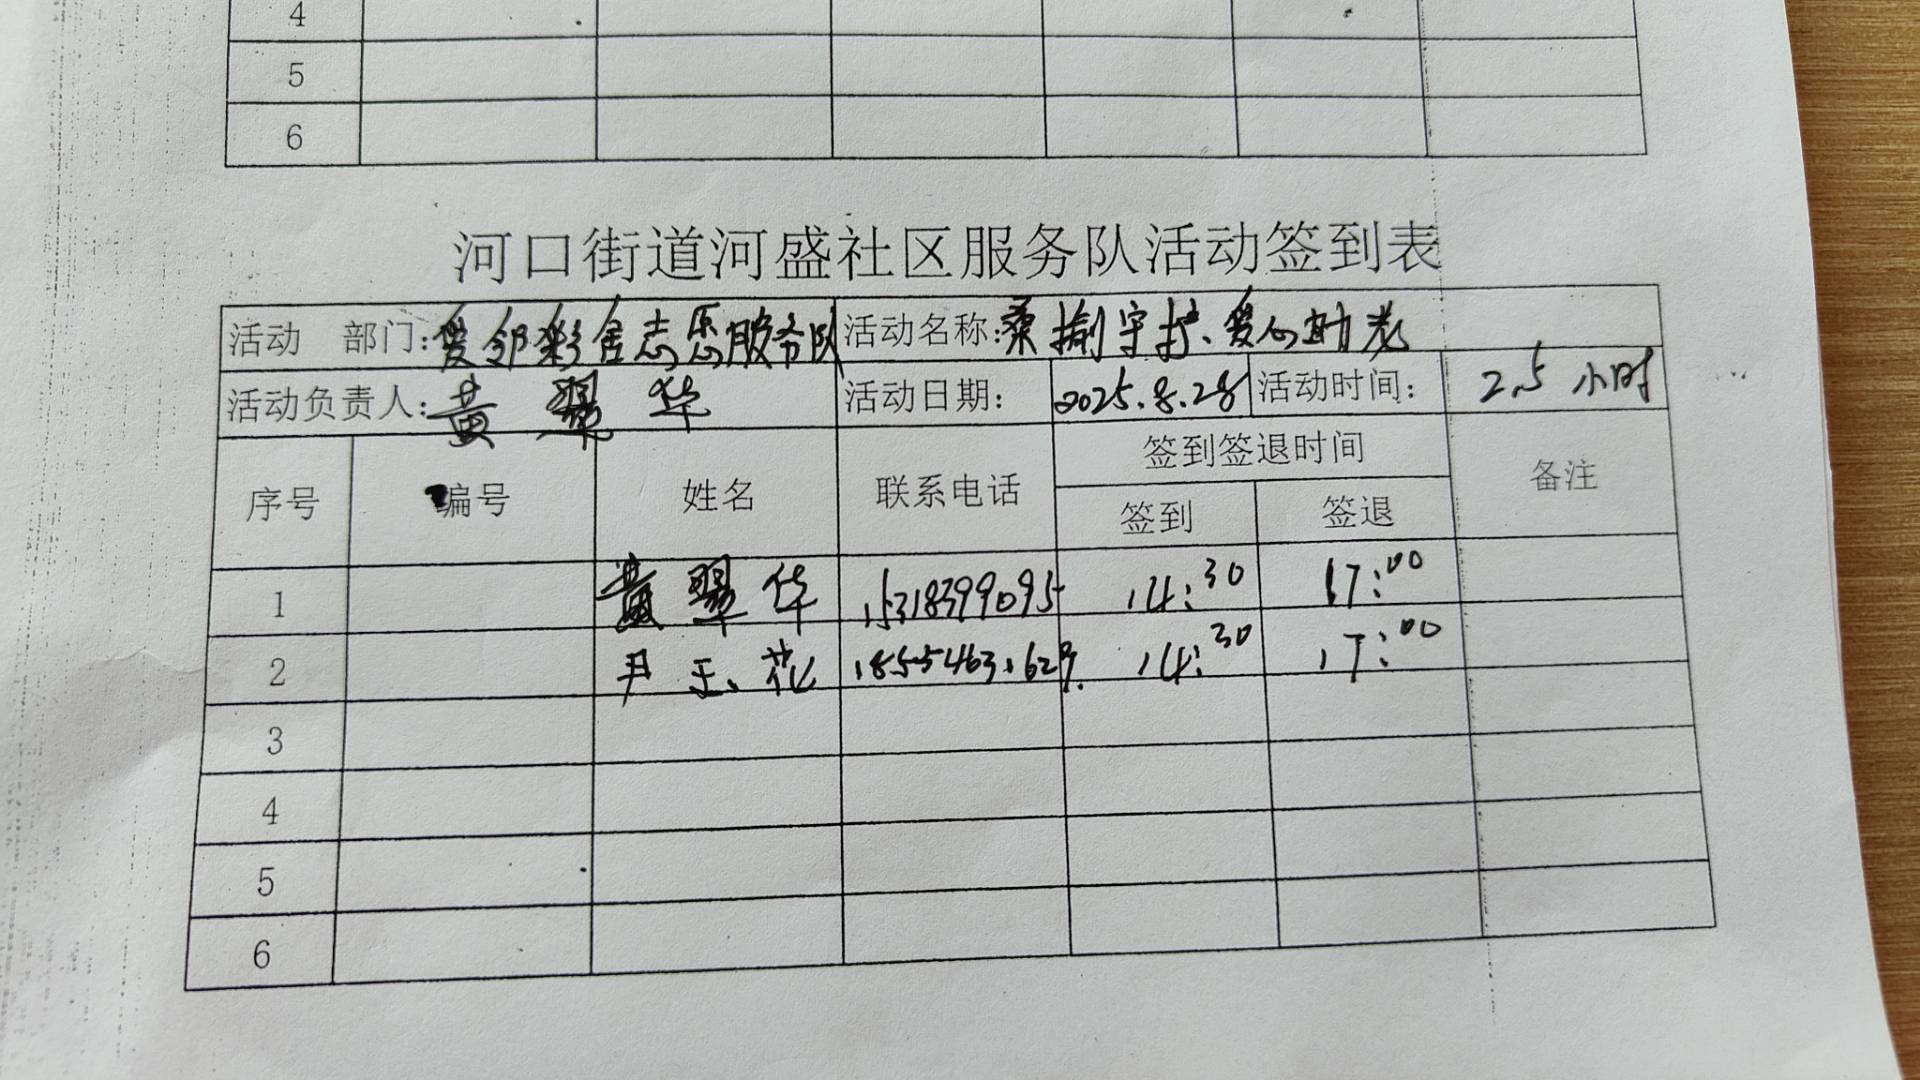 4
5
6
河口街道河盛社区服务队活动签到表
活动 部门: 爱邻彩舍志愿服务队 活动名称: 桑榆守护、爱心助老
活动负责人: 黄翠华 活动日期: 2025.8.28 活动时间: 2.5 小时
序号 编号 姓名 联系电话 签到签退时间 备注
签到 签退
1 黄翠华 15318399095 14:30 17:00
2 尹玉花 18554631629 14:30 17:00
3
4
5
6